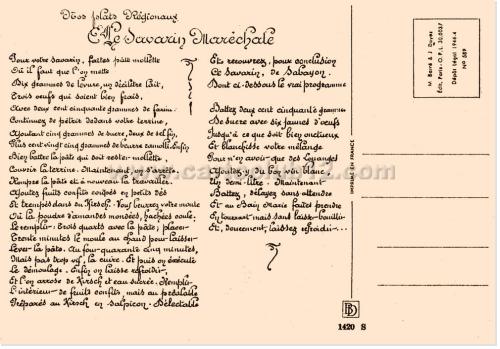 Nos plats Régionaux
Le Savarin Maréchale
Pour votre savarin, faites pâte mollette
Où il faut que l'on mette
Dix grammes de levure, un décilitre lait,
Trois œufs qui soient bien frais,
Avec deux cent cinquante grammes de farine.
Continuez de pétrir dedans votre terrine,
Ajoutant cinq grammes de sucre, deux de sel fin,
Plus cent vingt cinq grammes de beurre ramolli. Enfin
Bien battre la pâte qui doit rester mollette,
Couvrir la terrine. Maintenant
Rompez la pâte et à nouveau la travailler.
Ajoutez fruits confits coupés en petits dés
Et trempés dans du Kirsch. Vous beurrez votre moule
Où la poudre d'amandes mondées, hachées coule.
Le remplir: Trois quarts avec la pâte; placer
Trente minutes le moule au chaud pour laisser
Lever la pâte. Au four quarante cinq minutes,
Mais pas trop vif, la cuire. Et puis on exécute
Le démoulage. Enfin on laisse refroidir,
Et l'on arrose de Kirsch et eau sucrée. Remplir
L'intérieur de fruits confits, mais au préalable
Préparés au Kirsch en salpicon. Délectable
Et recouvrez, pour conclusion
Ce savarin, de Sabayon.
Dont ci-dessous le vrai programme
Battez deux cent cinquante grammes
De sucre avec six jaunes d'œufs
Jusqu'à ce que soit bien onctueux
Et blanchisse votre mélange
Pour n'y avoir que des Louanges
Ajoutez y du bon vin blanc,
Un demi-litre. Maintenant
Battez, délayez sans attendre
Et au Bain Marie faites prendre
En tournant mais sans laisser bouillir
Et, doucement, laissez refroidir...
IMPRIMÉ EN FRANCE
M. Barré & J. Dayez
Édit. Paris - O.P.L.
Dépôt légal 1946-4
N° 589
BD
1420 S